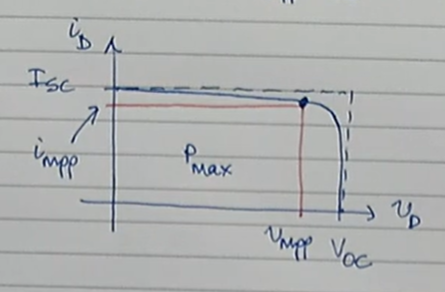 i_D
I_SC
i_mpp
P_max
v_D
v_mpp V_OC